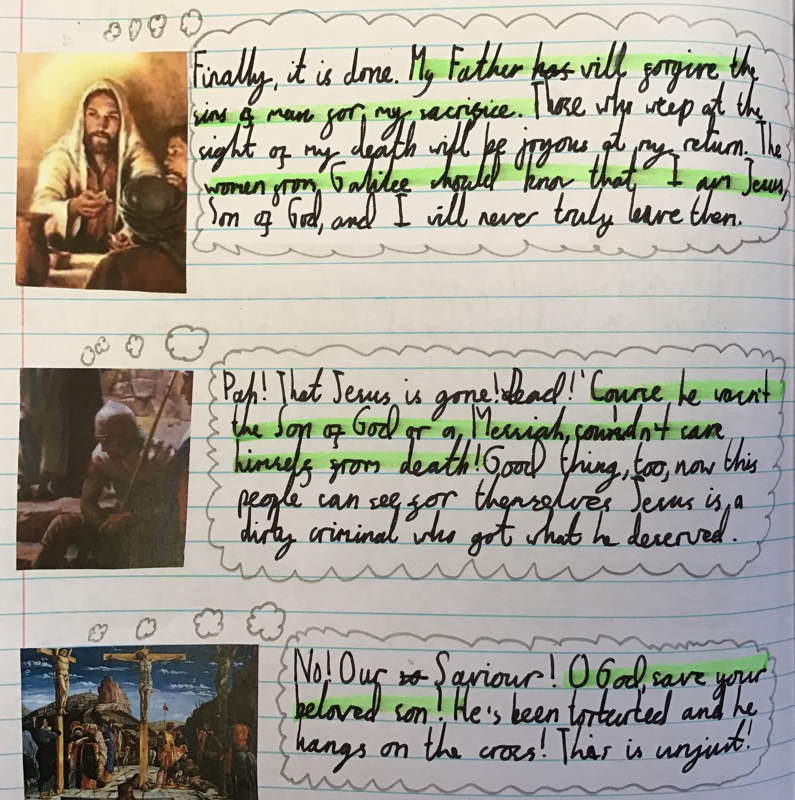 Finally, it is done. My Father has will forgive the
sins of man for my sacrifice. Those who weep at the
sight of my death will be joyous at my return. The
women from Galilee should know that I am Jesus,
Son of God, and I will never truly leave them.
Pah! That Jesus is gone! Dead! 'Course he wasn't
the Son of God or a Messiah, couldn't save
himself from death! Good thing, too, now this
people can see for themselves Jesus is a
dirty criminal who got what he deserved.
No! Our Saviour! O God, save your
beloved son! He's been torturted and he
hangs on the cross! This is unjust!